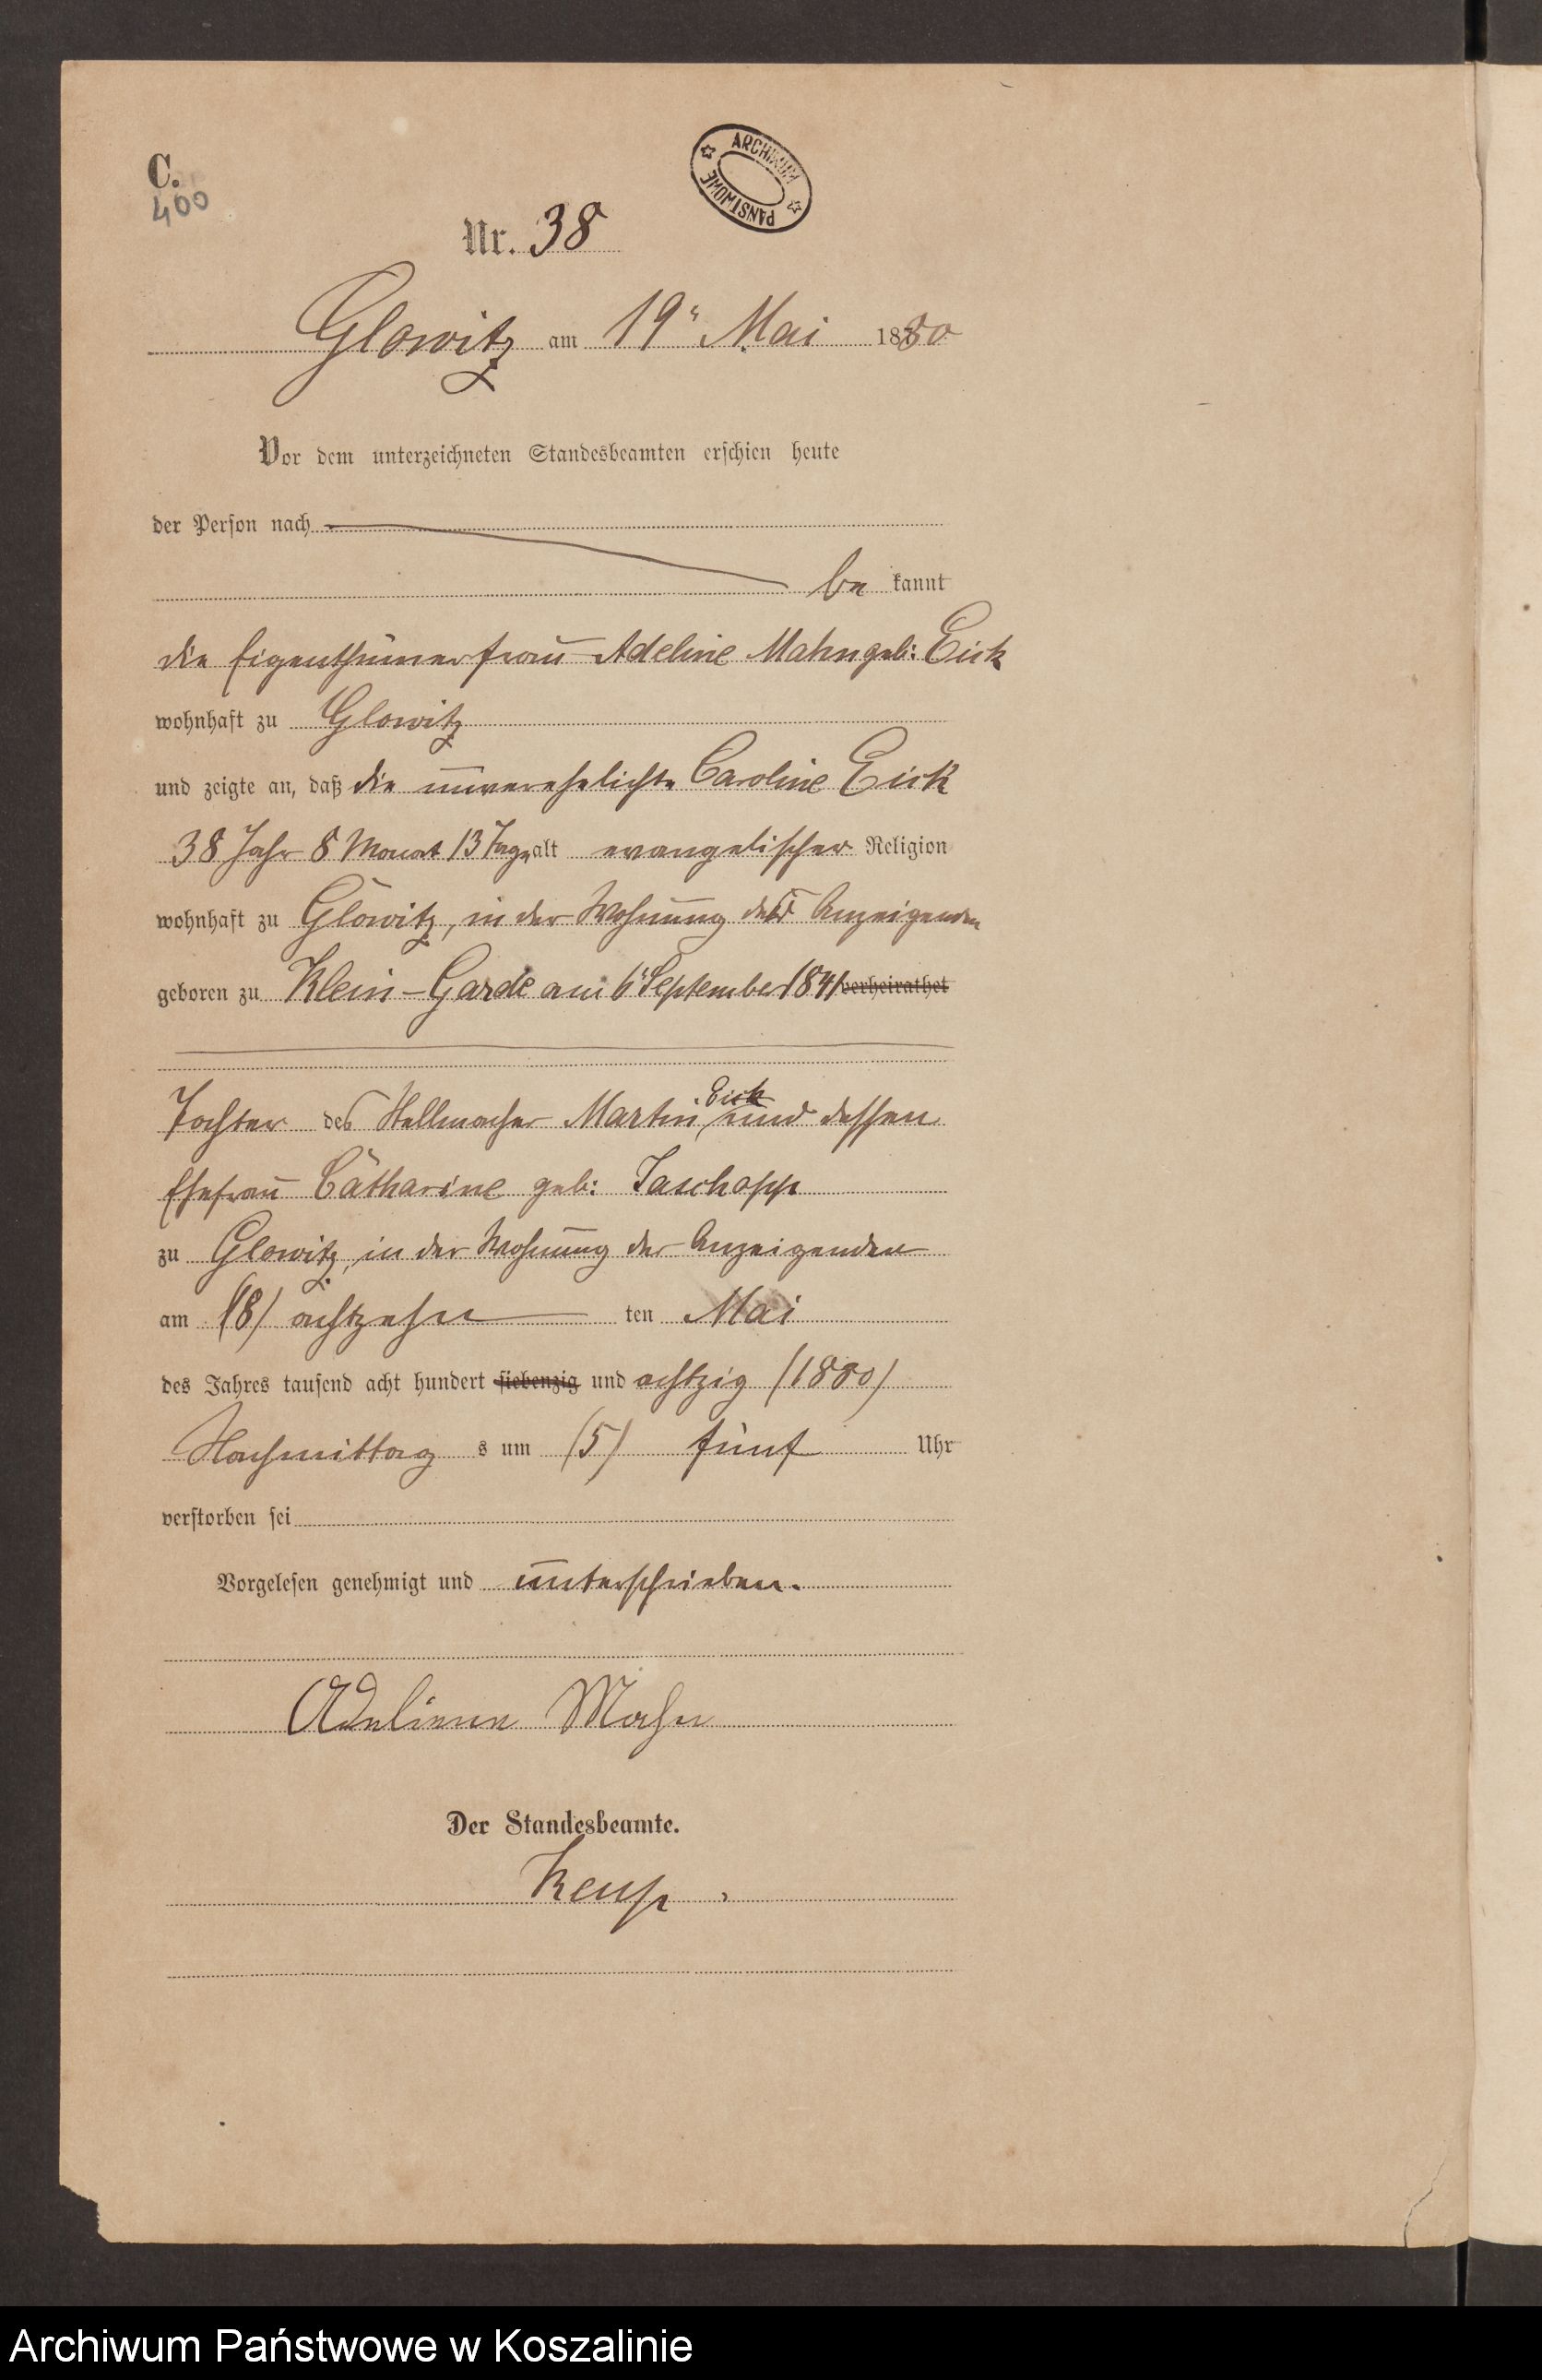 C.
400
ARCHIWUM PAŃSTWOWE
Nr. 38
Glowitz am 19ten Mai 1880
Vor dem unterzeichneten Standesbeamten erschien heute
der Person nach
be kannt
die Eigenthümerfrau Adeline Mahn geb: Eick
wohnhaft zu Glowitz
und zeigte an, daß die unverehelichte Caroline Eick
38 Jahr 8 Monat 13 Tage alt evangelischer Religion
wohnhaft zu Glowitz, in der Wohnung der Anzeigenden
geboren zu Klein-Garde am 6ten September 1841 verheirathet
Eick
Tochter des Stellmacher Martin und dessen
Ehefrau Catharine geb: Taschopp
zu Glowitz, in der Wohnung der Anzeigenden
am (18) achtzehn ten Mai
des Jahres tausend acht hundert siebenzig und achtzig (1880)
Nachmittag s um (5) fünf Uhr
verstorben sei
Vorgelesen genehmigt und unterschrieben.
Adeline Mahn
Der Standesbeamte.
Archiwum Państwowe w Koszalinie